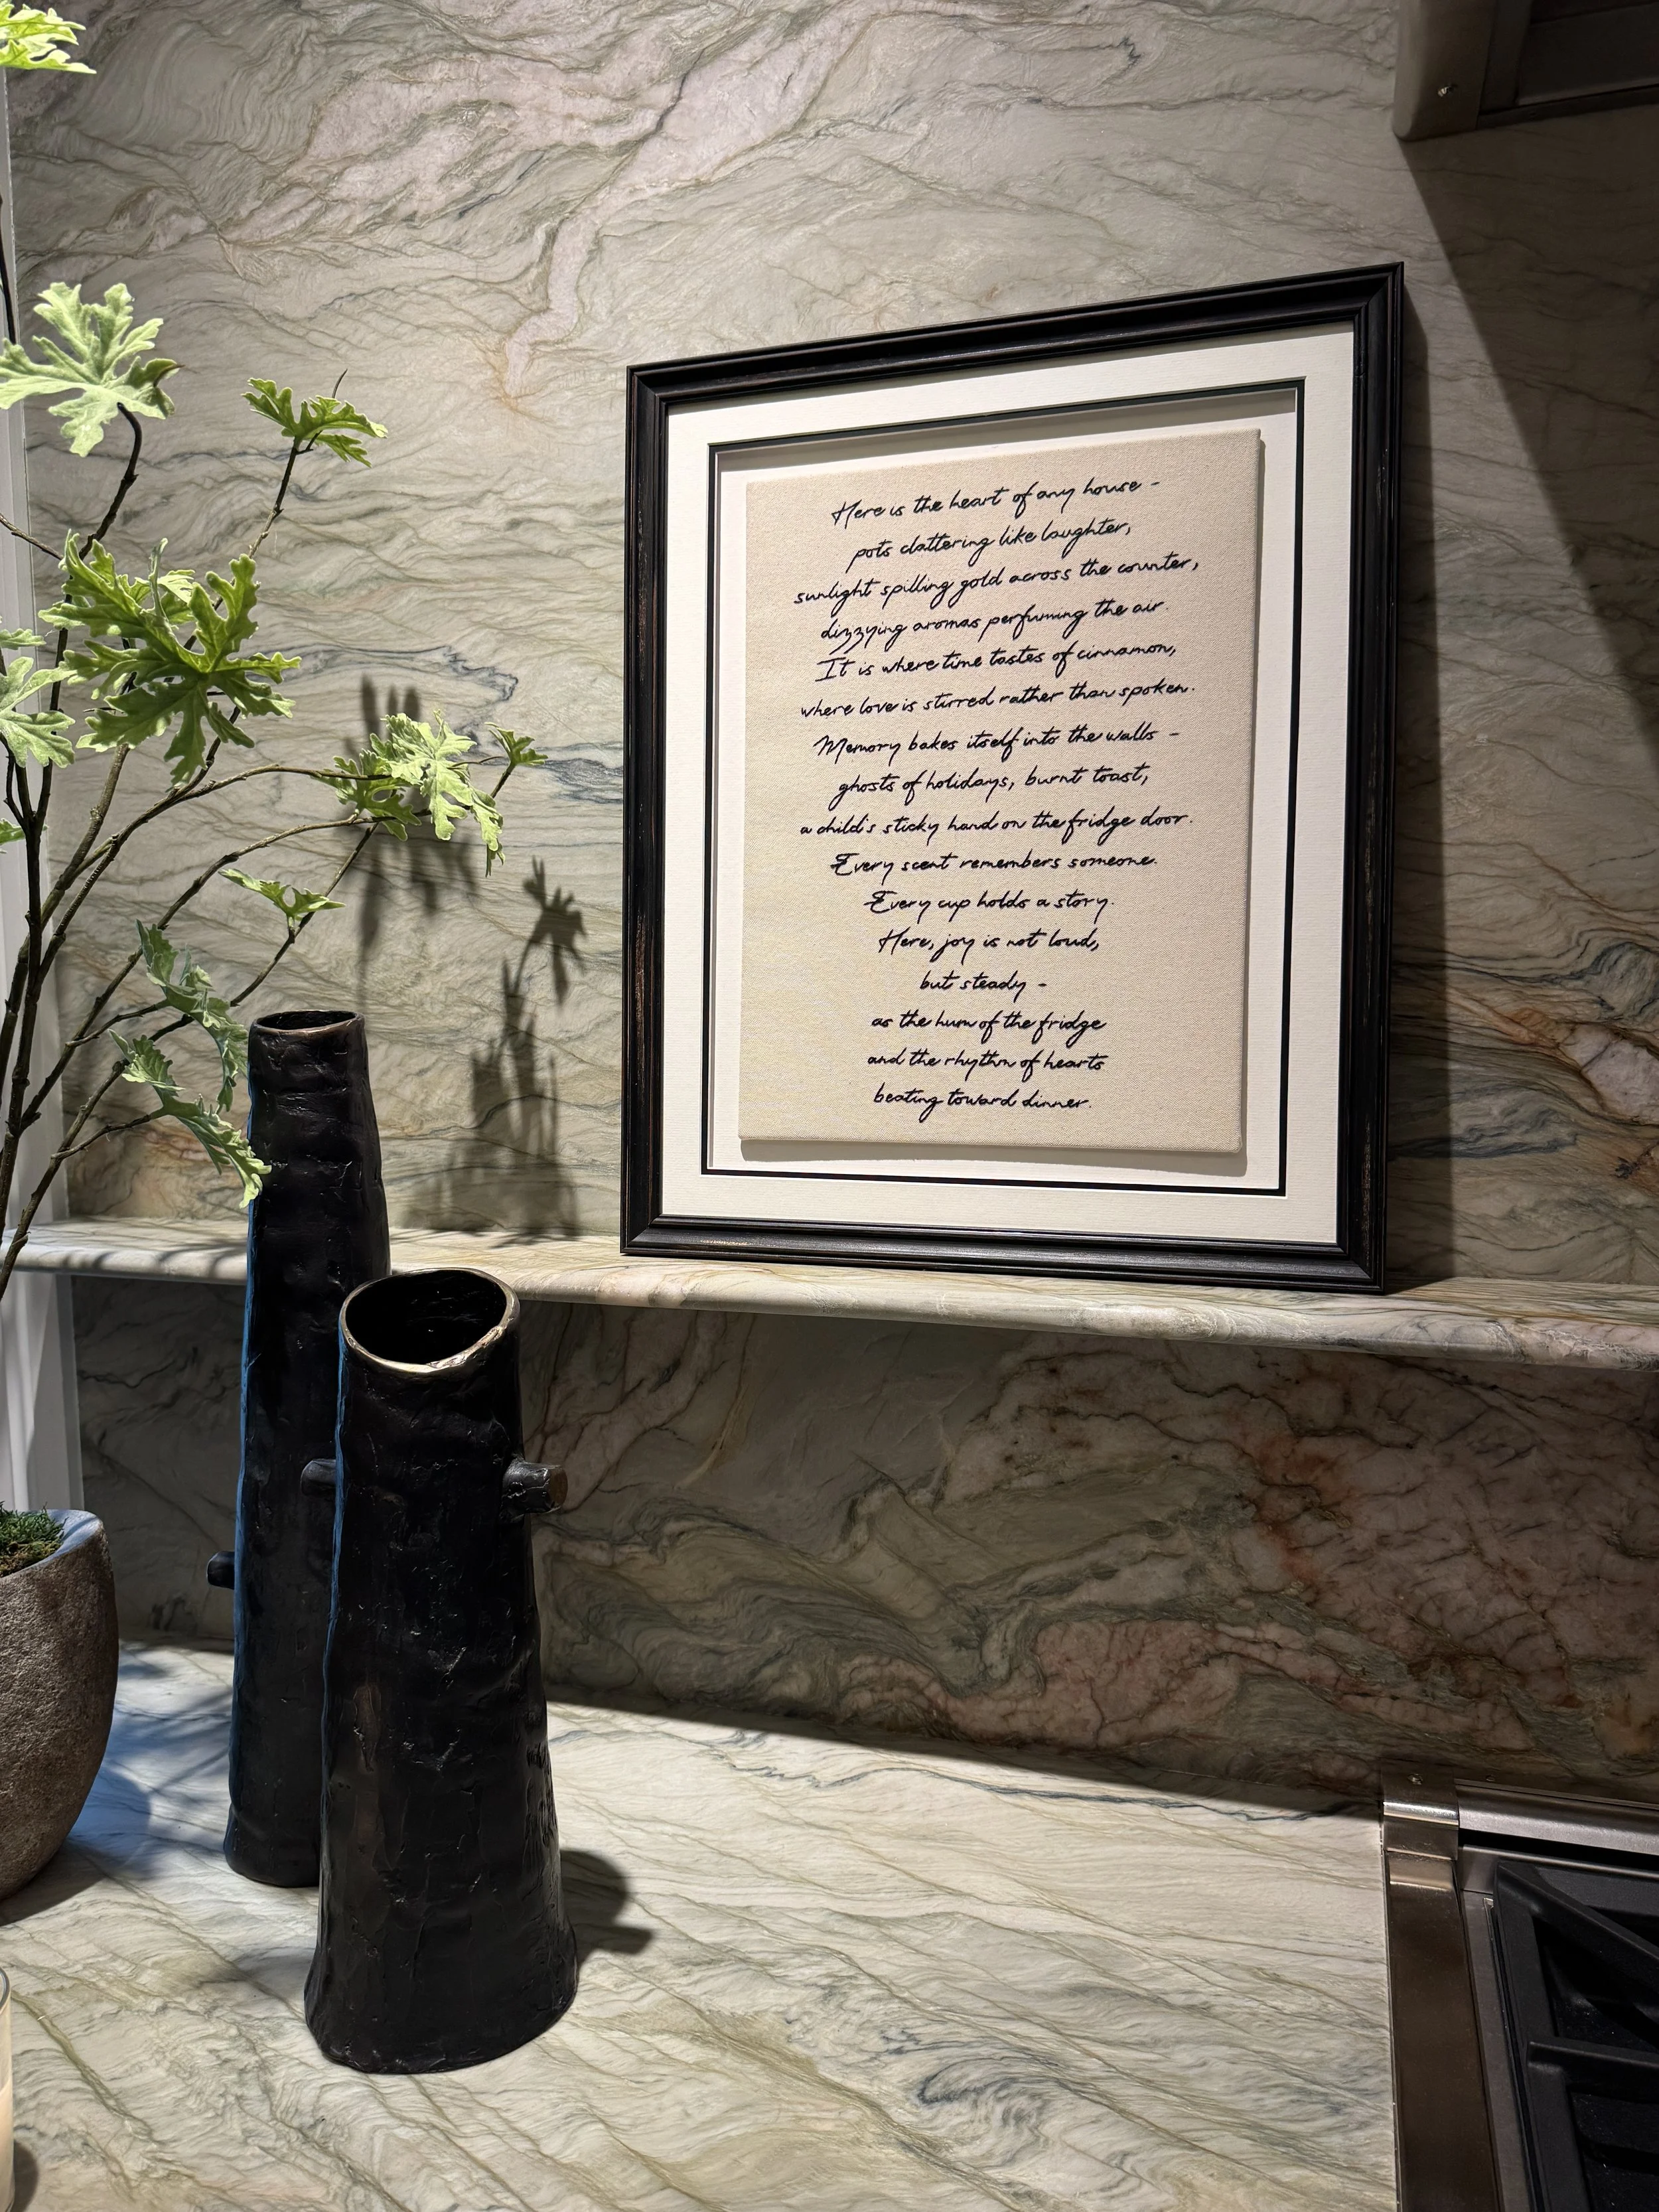 Here is the heart of any house -
pots clattering like laughter,
sunlight spilling gold across the counter,
dizzying aromas perfuming the air.
It is where time tastes of cinnamon,
where love is stirred rather than spoken.
Memory bakes itself into the walls -
ghosts of holidays, burnt toast,
a child's sticky hand on the fridge door.
Every scent remembers someone.
Every cup holds a story.
Here, joy is not loud,
but steady -
as the hum of the fridge
and the rhythm of hearts
beating toward dinner.